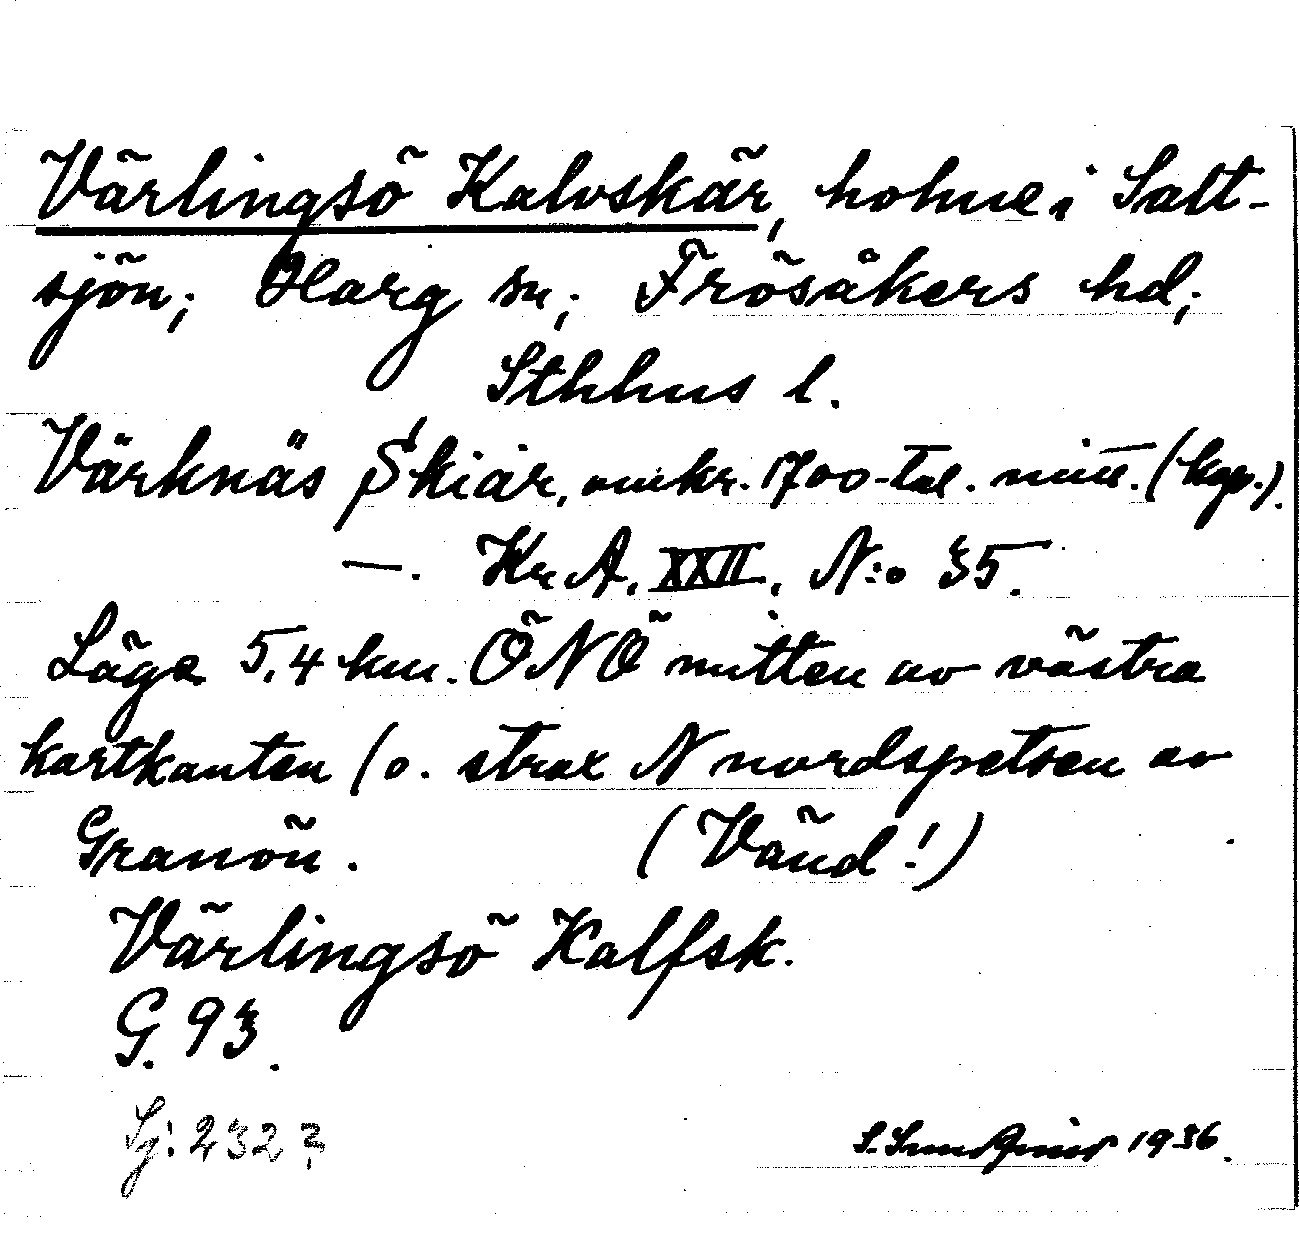 Värlingsö Kalvskär, holme i Salt-
sjön; Harg sn; Frösåkers hd;
Sthlms l.
Värknäs Skiär, omkr. 1700-tal. mitt. (kop.).
—. Kr. A. XXII. N:o 35.
Läge 5,4 km. ÖNÖ mitten av västra
kartkanten (o. strax N nordspetsen av
Granön. (Vänd!)
Värlingsö Kalfsk.
G. 93.
Sj: 232?
S. 1936.